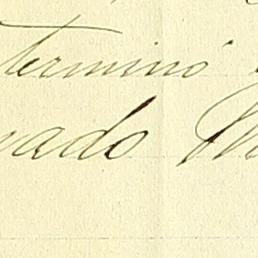 terminó
vado M